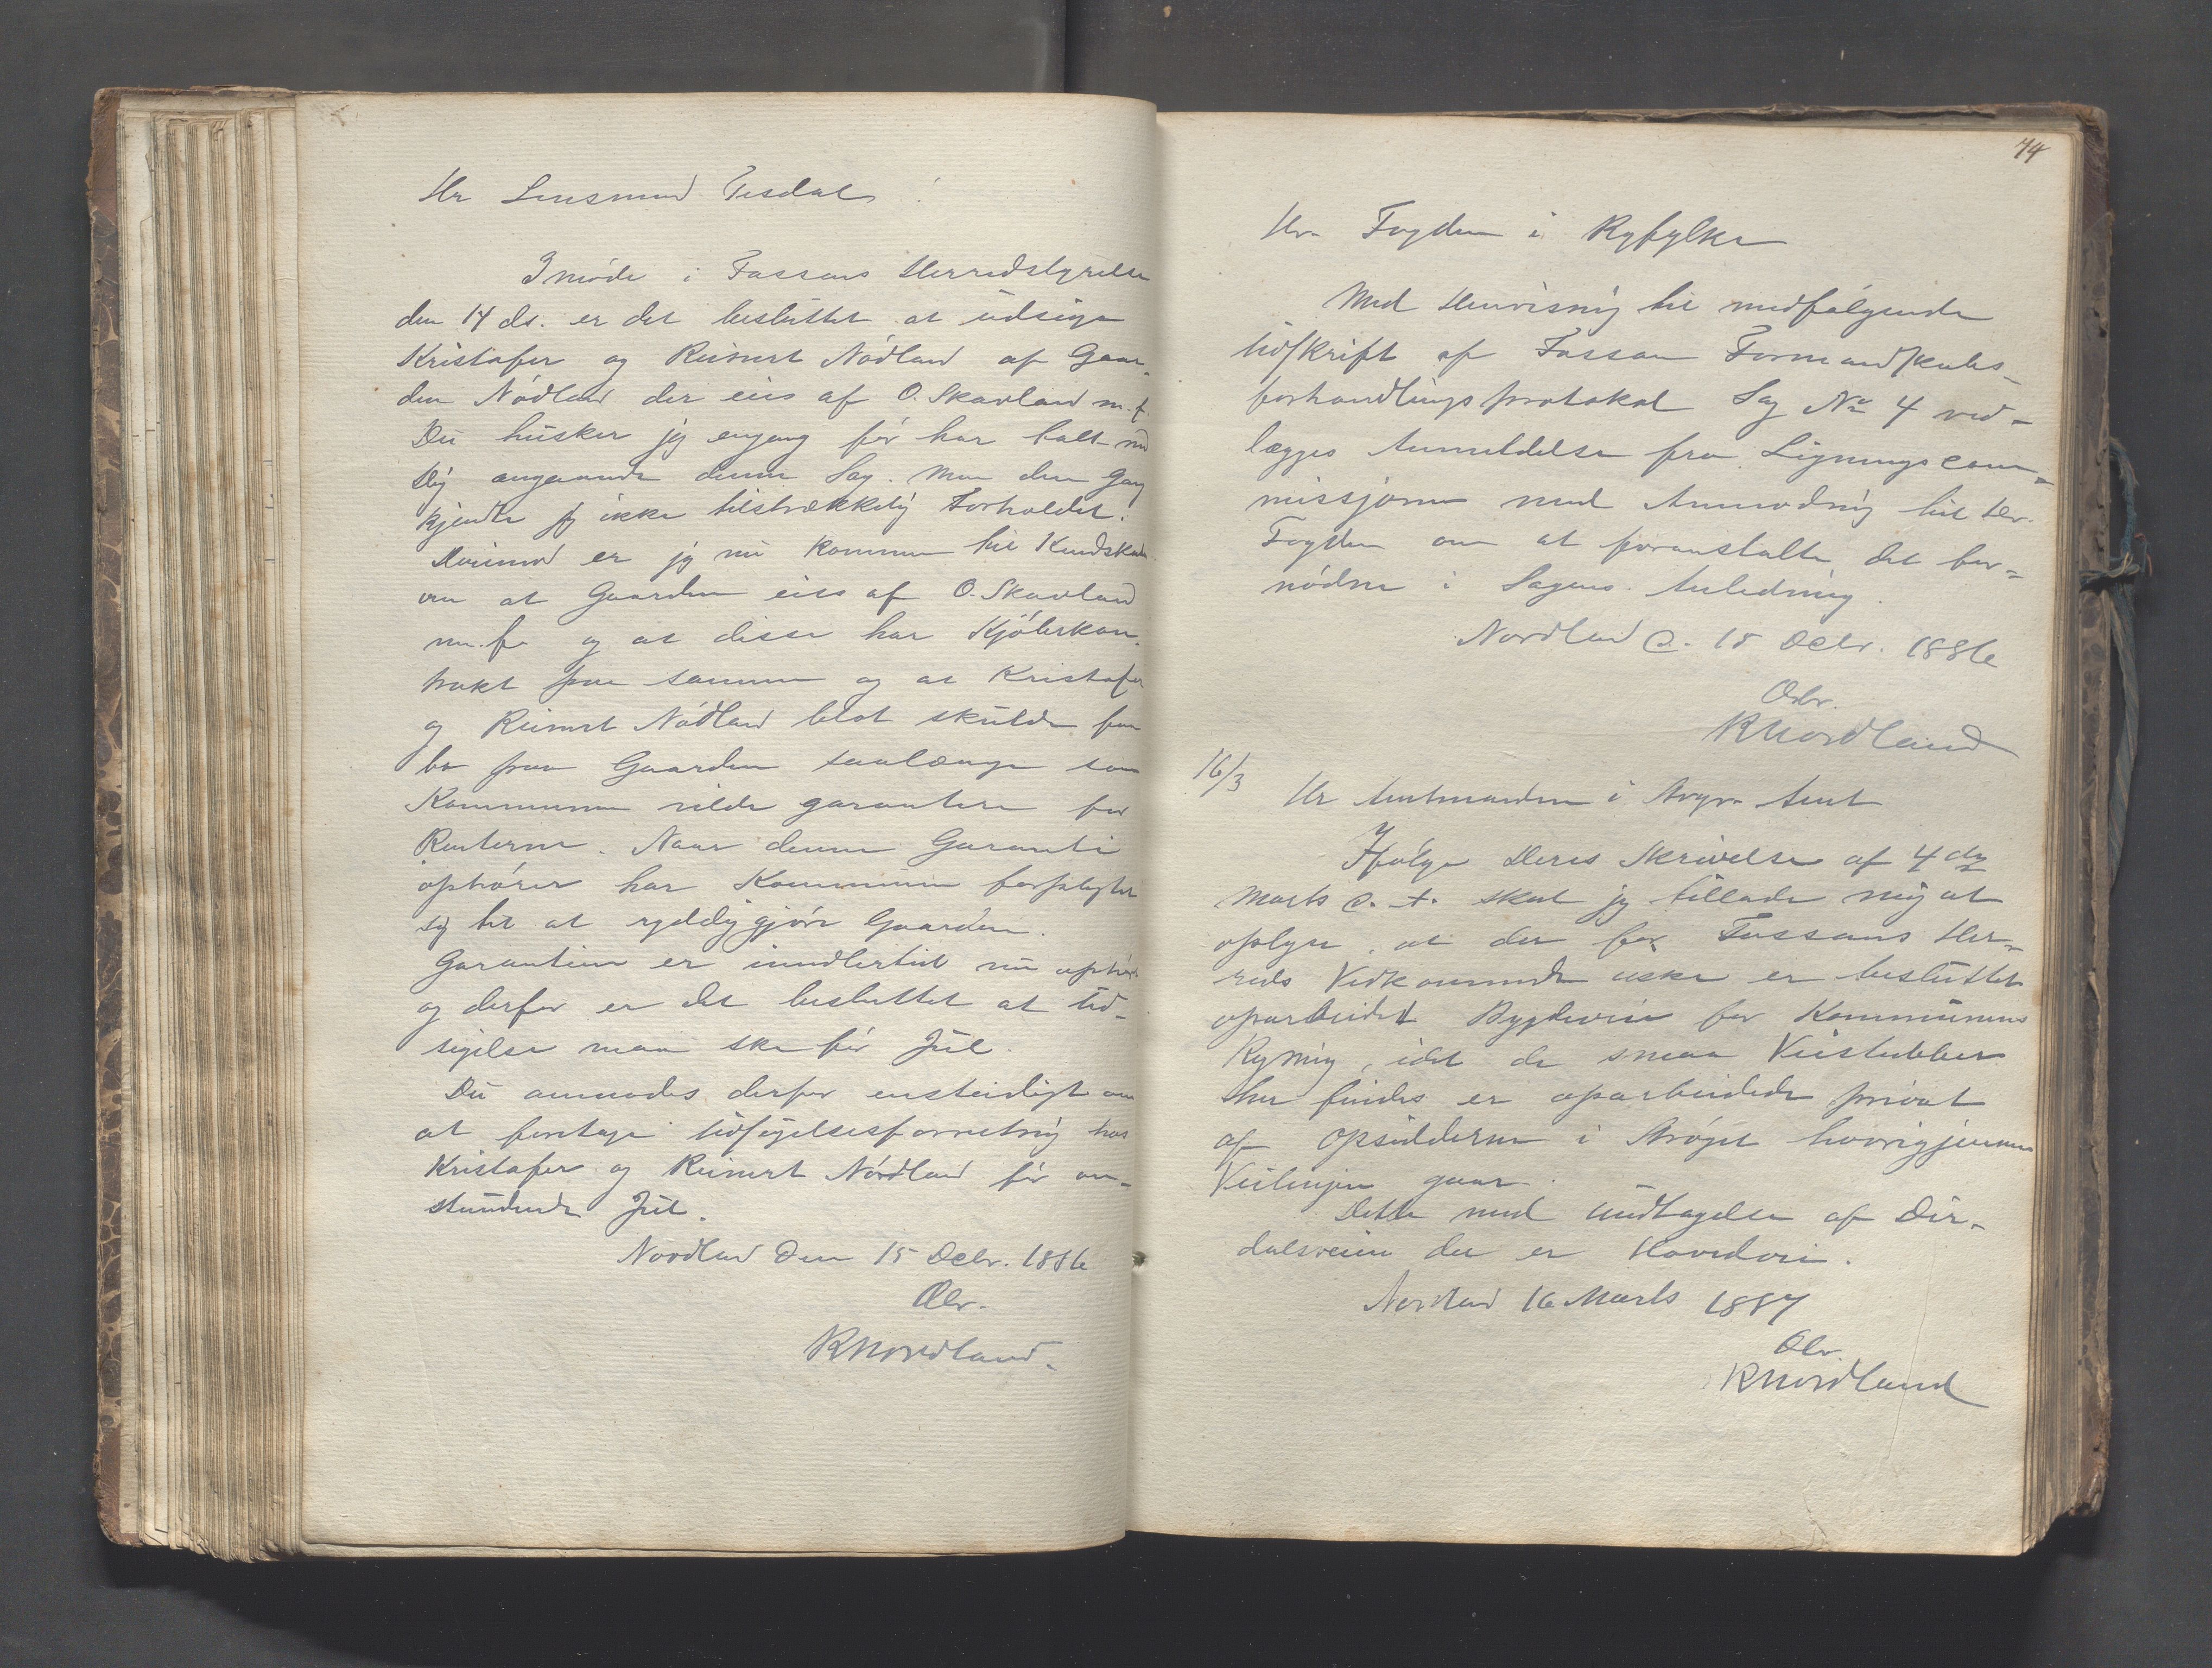 Hr Lensmand Tesdal!
I møde i Fossans Herredstyrelse
den 14 ds. er det besluttet at udsige
Kristofer og Reinert Nödland af Gaar-
den Nödland der eies af O. Skavland m. f.
Du husker jeg engang før har talt med
Dig angaaende denne Sag. Men den Gang
kjendte jeg ikke tilstrækkelig Forholdet.
Derimod er jeg nu kommen til Kundskab
om at Gaarden eies af O. Skavland
m. fr og at disse har Kjöberkon-
trakt paa samme og at Kristofer
og Reinert Nödland blot skulde faa
bo paa Gaarden saalænge som
Kommunen vilde garantere for
Renterne. Naar denne Garanti
ophörer har Kommunen forpligtet
sig til at ryddiggjöre Gaarden.
Garantien er imidlertid nu ophört
og derfor er det besluttet at Ud-
sigelse maa ske før Jul.
Du anmodes derfor ensteidigt om
at foretage Udsigelsesforretning hos
Kristofer og Reinert Nödland før an-
stundende Jul.
Nordland den 15 Decbr. 1886
Ærb.
RNordland
74
Hr. Fogden i Ryfylke
Med Henvisning til medfølgende
Udskrift af Fossan Formandskabs-
forhandlingsprotokol Sag No 4 ved-
lægges Anmeldelse fra Ligningscom-
missjonen med Anmodning til Hr.
Fogden om at foranstalte det for-
nødne i Sagens Anledning.
Nordland d. 18 Decbr. 1886
Ærb.
RNordland
16/3
Hr Amtmanden i Stvgr. Amt
Ifølge Deres Skrivelse af 4 de
Marts d. A. skal jeg tillade mig at
oplyse, at der for Fossans Her-
reds Vedkommende ikke er besluttet
oparbeidet Bygdevei for Kommunens
Regning, idet de smaa Veistubber
her findes er oparbeidede privat
af Opsidderne i Strøget hvorigjennem
Veilinjen gaar.
Dette med Undtagelse af Dir-
dalsveien der er Hovedvei.
Nordland 16 Marts 1887
Ærb.
RNordland